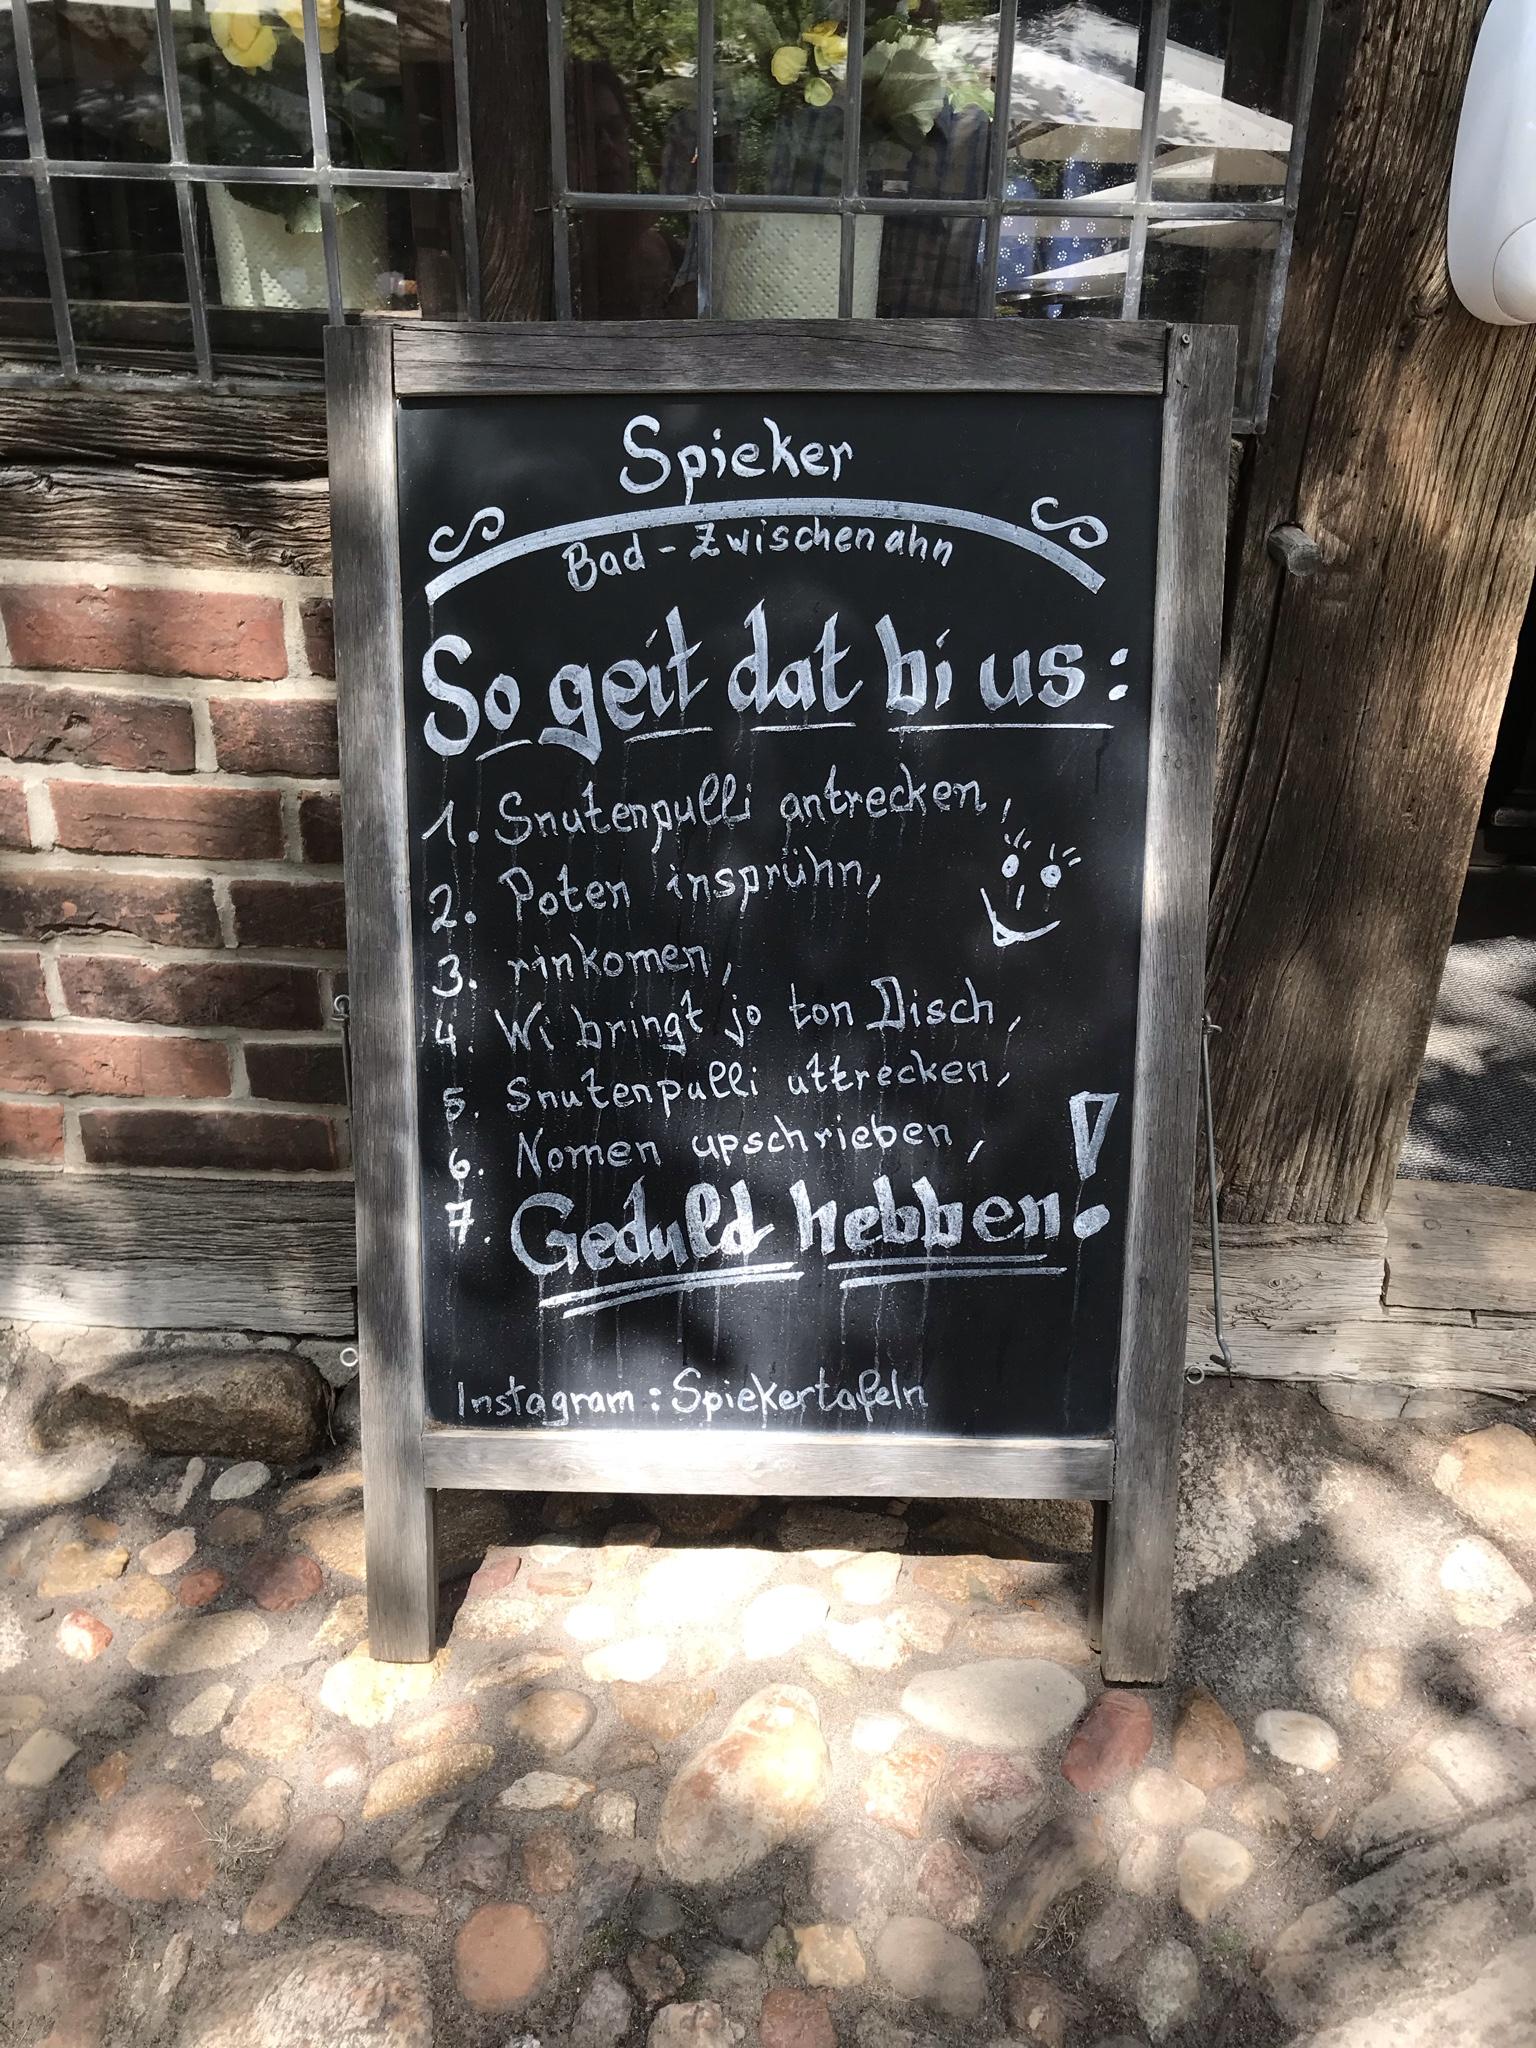 Spieker
Bad-Zwischenahn
So geit dat bi us:
1. Snutenpulli antrecken,
2. Poten insprühn,
3. rinkomen,
4. Wi bringt jo ton Disch,
5. Snutenpulli uttrecken,
6. Nomen upschrieben,
7. Geduld hebben!
Instagram: Spiekertafeln